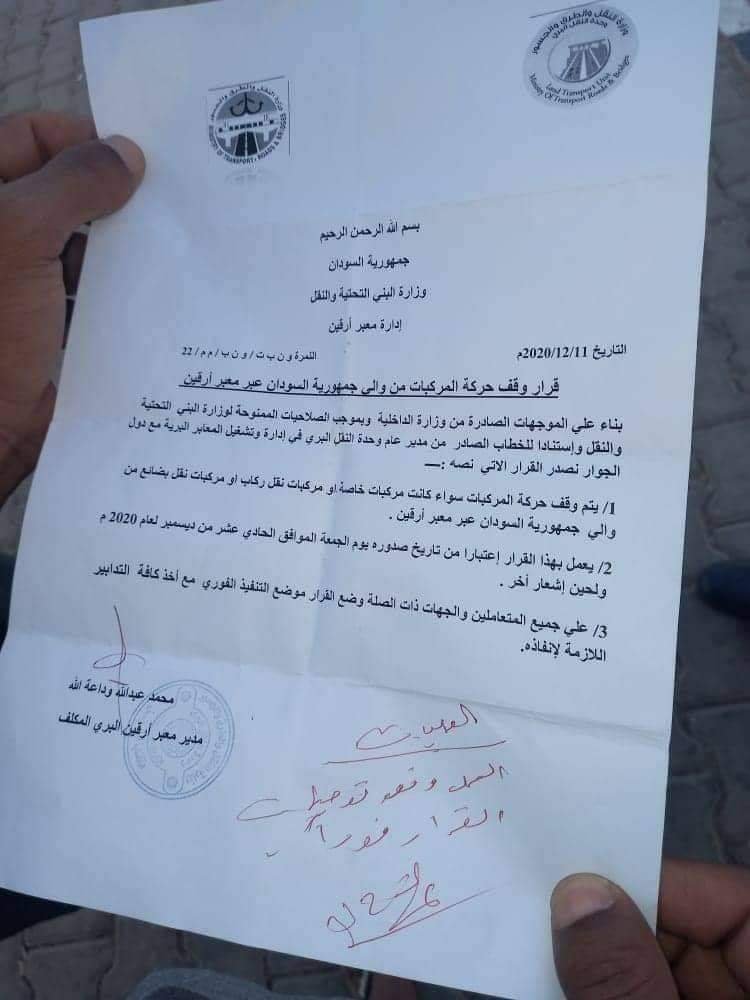 وزارة النقل والطرق والجسور
وحدة النقل البري
Land Transport Unit
Ministry Of Transport Roads & Bridges
وزارة النقل والطرق والجسور
MINISTRY OF TRANSPORT, ROADS & BRIDGES
بسم الله الرحمن الرحيم
جمهورية السودان
وزارة البني التحتية والنقل
إدارة معبر أرقين
التاريخ 2020/12/11م
النمرة و ن ب ت / و ن ب / م م / 22
قرار وقف حركة المركبات من والي جمهورية السودان عبر معبر أرقين
بناء علي الموجهات الصادرة من وزارة الداخلية وبموجب الصلاحيات الممنوحة لوزارة البني التحتية
والنقل وإستنادا للخطاب الصادر من مدير عام وحدة النقل البري في إدارة وتشغيل المعابر البرية مع دول
الجوار نصدر القرار الاتي نصه :ــــ
1/ يتم وقف حركة المركبات سواء كانت مركبات خاصة او مركبات نقل ركاب او مركبات نقل بضائع من
والي جمهورية السودان عبر معبر أرقين .
2/ يعمل بهذا القرار إعتبارا من تاريخ صدوره يوم الجمعة الموافق الحادي عشر من ديسمبر لعام 2020 م
ولحين إشعار أخر .
3/ علي جميع المتعاملين والجهات ذات الصلة وضع القرار موضع التنفيذ الفوري مع أخذ كافة التدابير
اللازمة لإنفاذه.
محمد عبدالله وداعة الله
مدير معبر أرقين البري المكلف
العمليات
العمل وفق توجيهات
القرار فورا